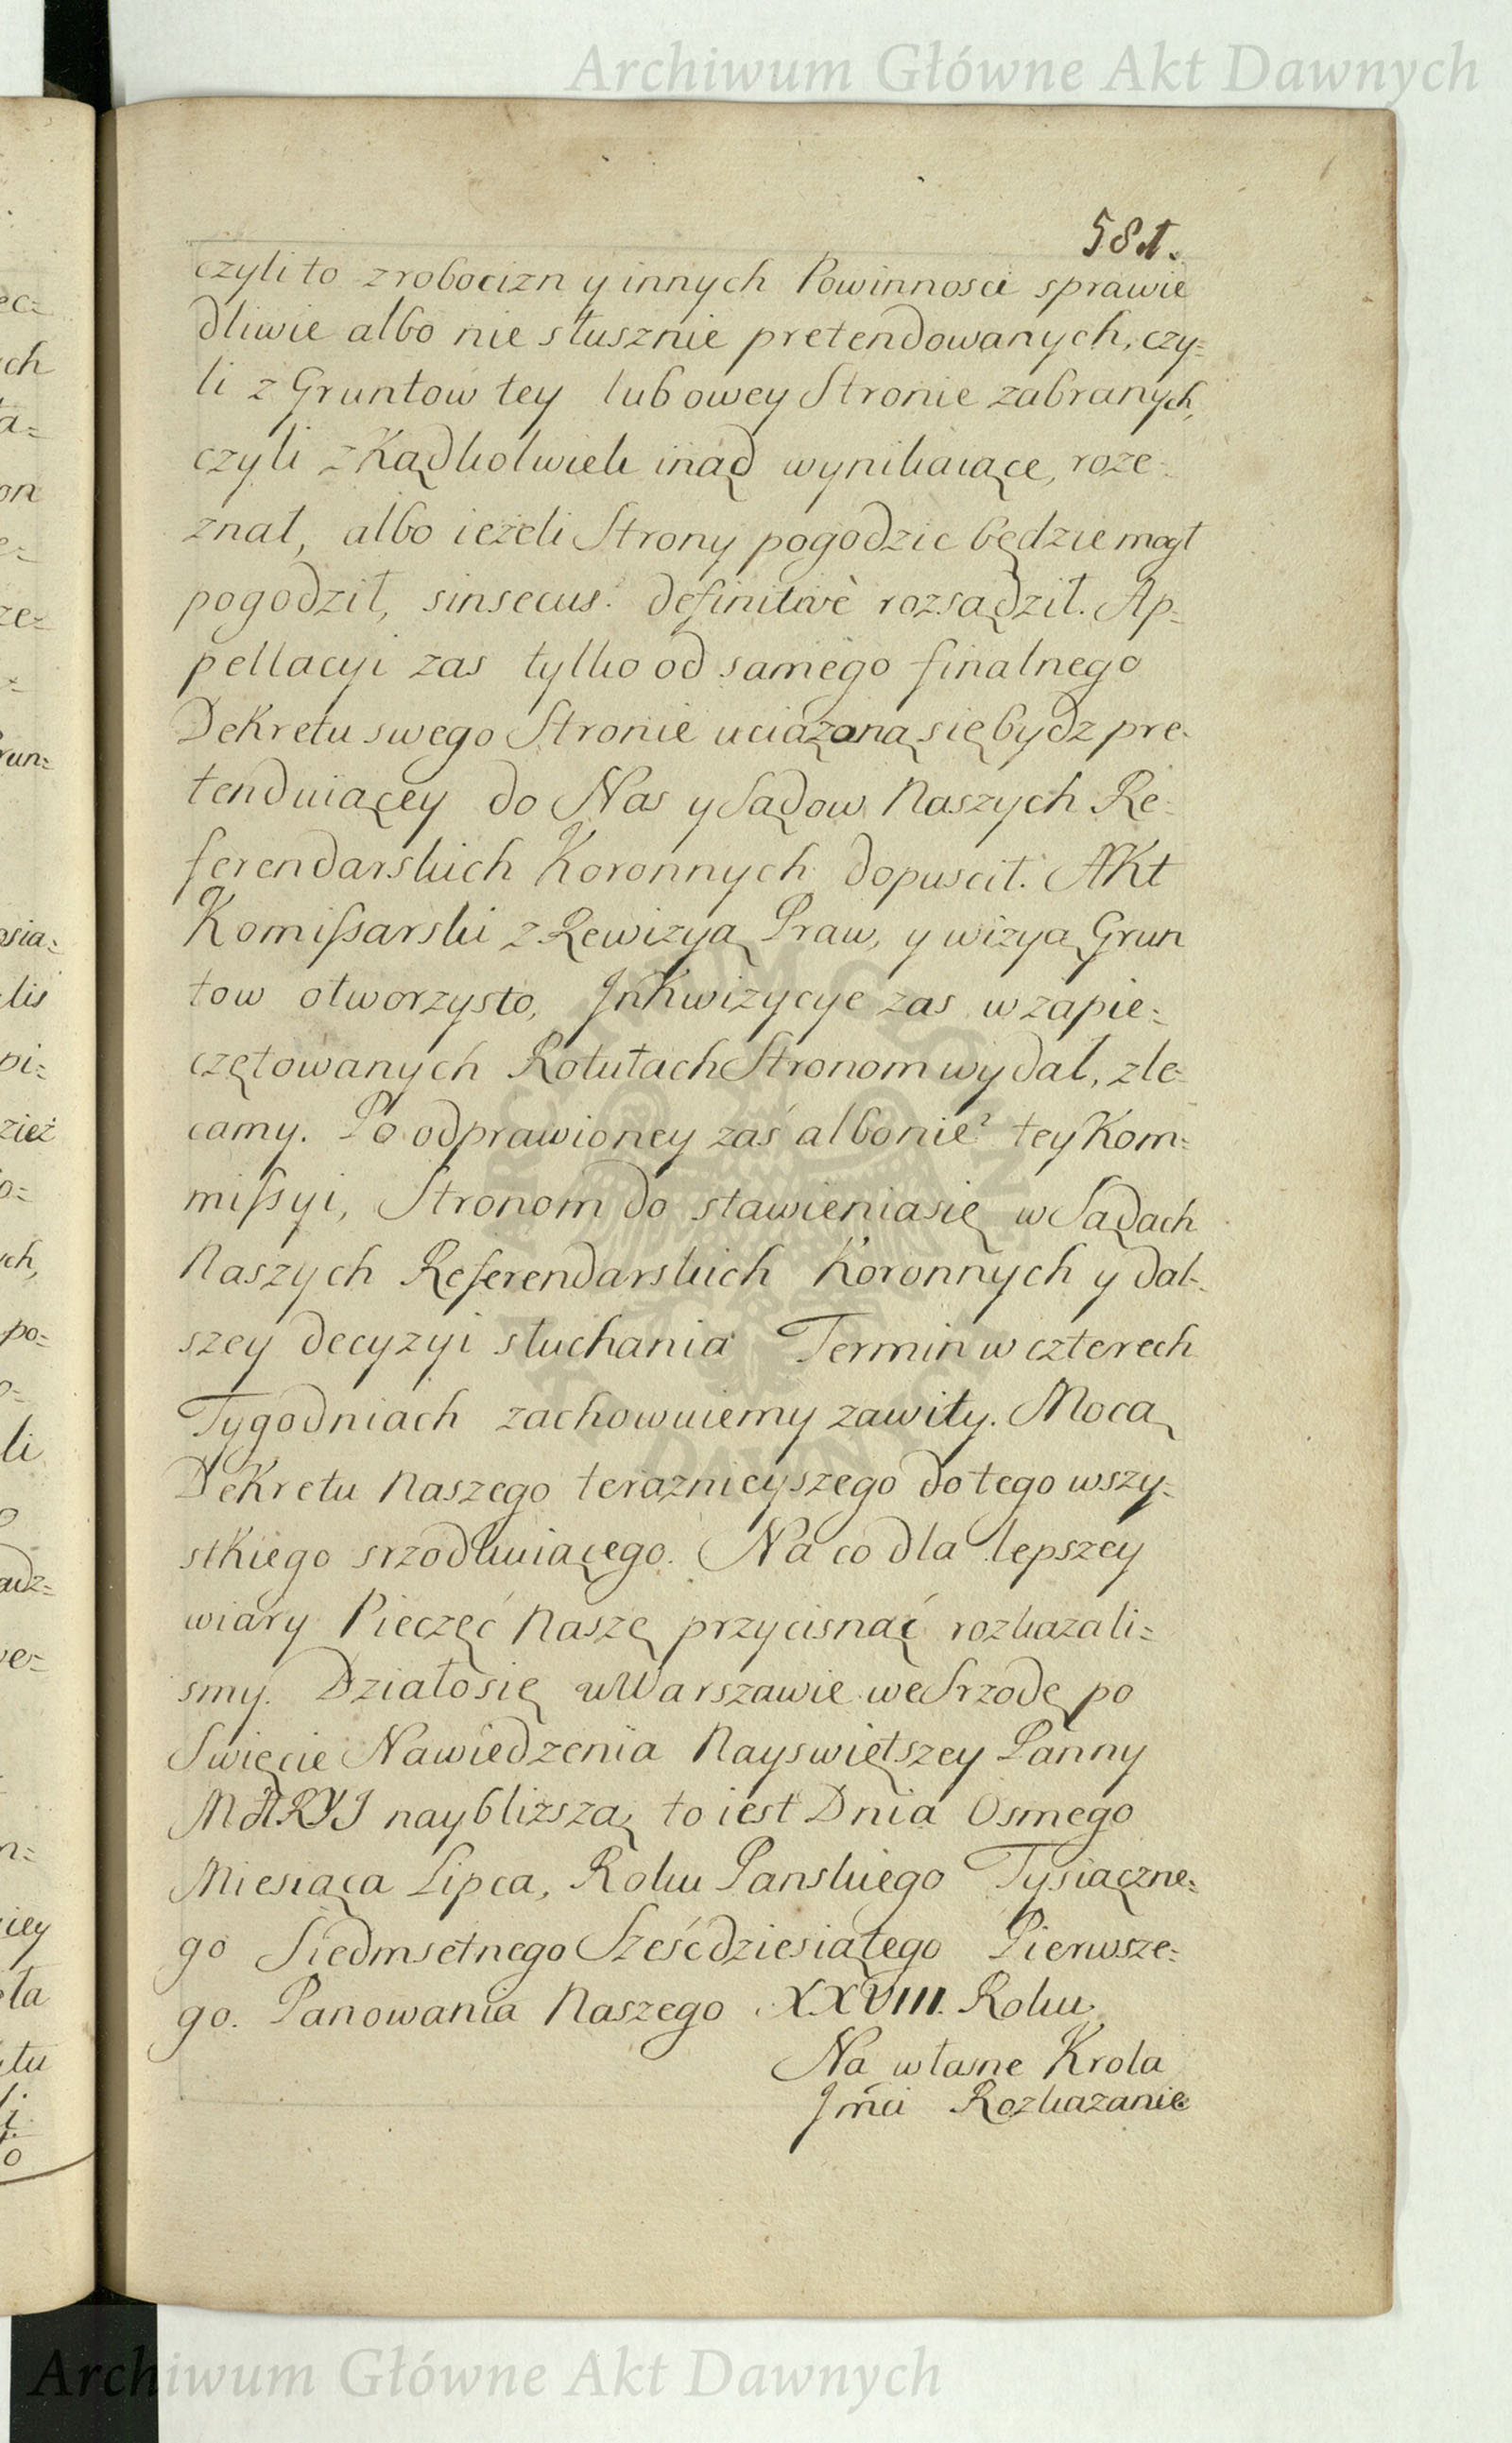 Archiwum Główne Akt Dawnych
581.
czyli to z robocizn y innych Powinnosci sprawie
dliwie albo nie słusznie pretendowanych, czy=
li z Gruntow tey lub owey Stronie zabranych,
czyli z Kądkolwiek inąd wynikaiące, roze=
znał, albo ieżeli Strony pogodzic będzie mogł
pogodził, sinsecus. definitivè rozsądził. Ap=
pellacyi zas tylko od samego finalnego
Dekretu swego Stronie uciążoną się bydz pre=
tenduiącey do Nas y Sądow Naszych Re=
ferendarskich Koronnych dopuscił. AKt
Komißarski z Rewizyą Praw, y wizyą Grun
tow otworzysto, JnKwizycye zas w zapie=
czętowanych Rotułach Stronom wydał, zle=
camy. Po odprawioney zaś albo nie? tey Kom=
mißyi, Stronom do stawienia się w Sądach
Naszych Referendarskich Koronnych y dal=
szey decyzyi słuchania Termin w czterech
Tygodniach zachowuiemy zawity. Mocą
DeKretu Naszego teraznieyszego do tego wszy=
stkiego srzodkuiącego. Na co dla lepszey
wiary Pieczęć Naszę przycisnąć rozkazali=
smy. Działo się w Warszawie we Srzodę po
Swięcie Nawiedzenia Nayswiętszey Panny
MARYI naybliższą to iest Dnia Osmego
Miesiąca Lipca, Roku Panskiego Tysiączne=
go Siedmsetnego Sześćdziesiątego Pierwsze=
go. Panowania Naszego XXVIII. Roku,
Na własne Krola
Jmći Rozkazanie
Archiwum Główne Akt Dawnych